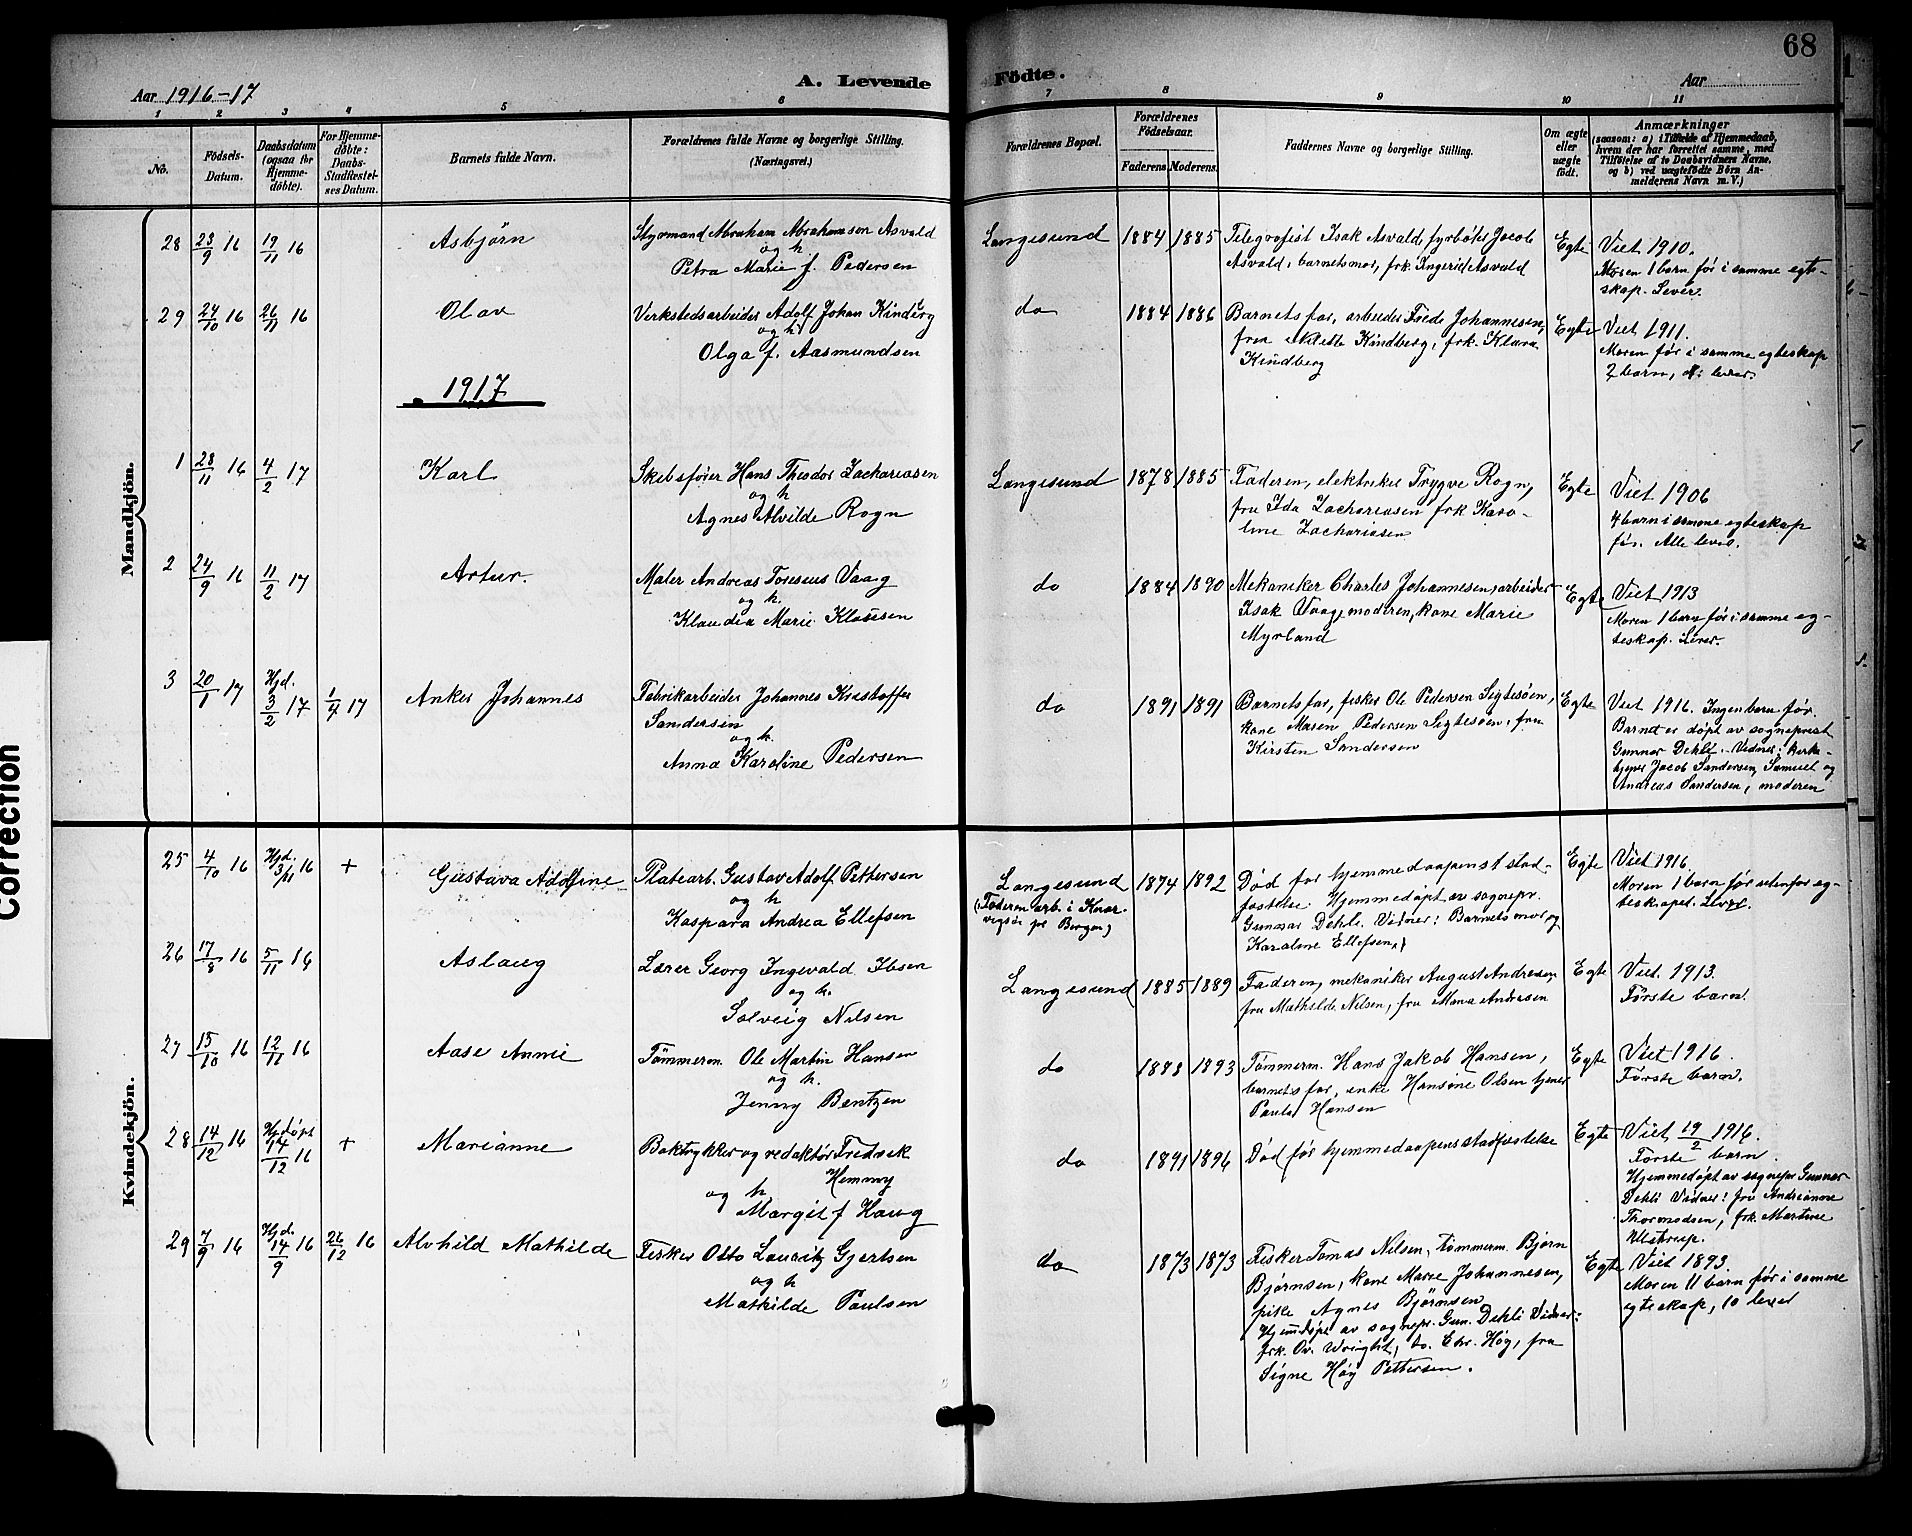 68
Aar 1916-17
A. Levende
Födte.
Aar
1 2 3 4 5 6 7 8 9 10 11
No.
Födsels-
Datum.
Daabsdatum
(ogsaa for
Hjemme-
döbte).
For Hjemme-
döbte:
Daabs-
Stadfæstel-
ses Datum.
Barnets fulde Navn.
Forældrenes fulde Navne og borgerlige Stilling.
(Næringsvei.)
Forældrenes Bopæl.
Forældrenes
Födselsaar.
Faderens. Moderens.
Faddernes Navne og borgerlige Stilling.
Om ægte
eller
uægte
födt.
Anmærkninger
(saasom: a) i Tilfælde af Hjemmedaab,
hvem der har forrettet samme, med
Tilföielse af to Daabsvidners Navne,
og b) ved uægtefödte Börn An-
melderens Navn m. V.)
Mandkjön.
28 23/9 16 19/11 16 Asbjörn
Styrmand Abraham Abrahamsen Asvald
og h
Petra Marie f. Pedersen
Langesund 1884 1885
Telegrafist Isak Asvald, fyrbøter Jacob
Asvald, barnetsmor, frk. Ingerid Asvald
Egte
Viet 1910.
Moren 1 barn før i samme egte-
skap. Lever.
29 24/10 16 26/11 16 Olav
Verkstedsarbeider Adolf Johan Kindberg
og h
Olga f. Aasmundsen
do 1884 1886
Barnets far, arbeider Frede Johannesen,
frøken Kindberg, frk. Klara
Kindberg
Egte
Viet 1911.
Moren før i samme egteskap
2 barn, lever.
1917
1 28/11 16 4/2 17 Karl
Skibsfører Hans Theodor Zachariasen
og h
Agnes Alvilde Rogn
Langesund 1878 1885
Faderen, elektriker Trygve Rogn,
fru Ida Zachariasen frk. Karo-
line Zachariasen
Egte
Viet 1906
4 barn i samme egteskap
før. Alle lever.
2 24/9 16 11/2 17 Artur.
Maler Andreas Toresius Vaag
og h.
Klaudia Marie Klausen
do 1884 1890
Mekaniker Charles Johannesen, arbeider
Isak Vaag, moderen, kone Marie
Myrland
Egte
Viet 1913
Moren 1 barn før i samme eg-
teskap. Lever.
3 20/1 17 Hjd. 3/2 17 1/4 17 Anker Johannes
Fabrikarbeider Johannes Kristoffer
Sandersen
og h.
Anna Karoline Pedersen
do 1891 1891
Barnets far, fisker Ole Pedersen Sigtesøen,
kone Maren Pedersen Sigtesøen, fru
Kirsten Sandersen
Egte
Viet 1916. Ingen barn før.
Barnet er døpt av sogneprest
Gunnar Dehli. Vidner: kirke-
tjener Jacob Sandersen, Samuel og
Andreas Sandersen, moderen
Kvindekjön.
25 4/10 16 Hjd. 3/11 16 + Gustava Adolfine
Platearb. Gustav Adolf Pettersen
og h
Kaspara Andrea Ellefsen
Langesund
(Faderen arb. i Knar-
vigsö pr Bergen)
1874 1892
Død før hjemmedaapens stad-
fæstelse. Hjemmedøpt av sognepr.
Gunnar Dehli. Vidner: Barnets mor og
Karoline Ellefsen.
Egte
Viet 1916.
Moren 1 barn før utenfor eg-
teskapet. Lever.
26 17/8 16 5/11 16 Aslaug
Lærer Georg Ingevald Ibsen
og h.
Solveig Nilsen
Langesund 1885 1889
Faderen, mekaniker August Andresen,
fru Mathilde Nilsen, fru Mona Andresen
Egte
Viet. 1913.
Første barn.
27 15/10 16 12/11 16 Aase Annie
Tömmerm. Ole Martin Hansen
og h.
Jenny Bentzen
do 1888 1893
Tømmerm. Hans Jakob Hansen,
barnets far, enke Hansine Olsen tjener
Paula Hansen
Egte
Viet 1916.
Første barn.
28 14/12 16 Hjdøpt 14/12 16 + Marianne
Boktrykker og redaktør Fredrik
Hemmy
og h
Margit f Haug
do 1891 1896
Død før hjemmedaapens stadfæstelse
Egte
Viet 19/2 1916.
Første barn.
Hjemmedøpt av sognepr Gunnar
Dehli Vidner: fru Andrianne
Thormodsen, frk. Martine
Ulstrup.
29 7/9 16 Hjd. 14/9 16 26/12 16 Alvhild Mathilde
Fisker Otto Lauritz Gjertsen
og h
Mathilde Paulsen
do 1873 1873
Fisker Tomas Nilsen, tømmerm. Bjørn
Bjørnsen, kone Marie Johannesen,
pike Agnes Bjørnsen
Hjemdøpt av sognepr. Gun. Dehli Vidner:
frk. Ov. Wright, do. Chr. Høg, fru
Signe Høy Pettersen.
Egte
Viet 1893.
Moren 11 barn før i samme
egteskap, 10 lever
Correction